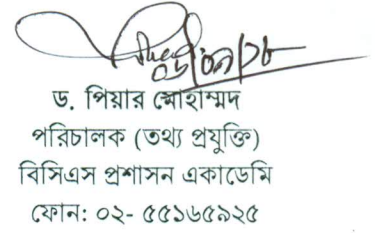 ড. পিয়ার মোহাম্মদ
পরিচালক (তথ্য প্রযুক্তি)
বিসিএস প্রশাসন একাডেমি
ফোন: ০২- ৫৫১৬৫৯২৫